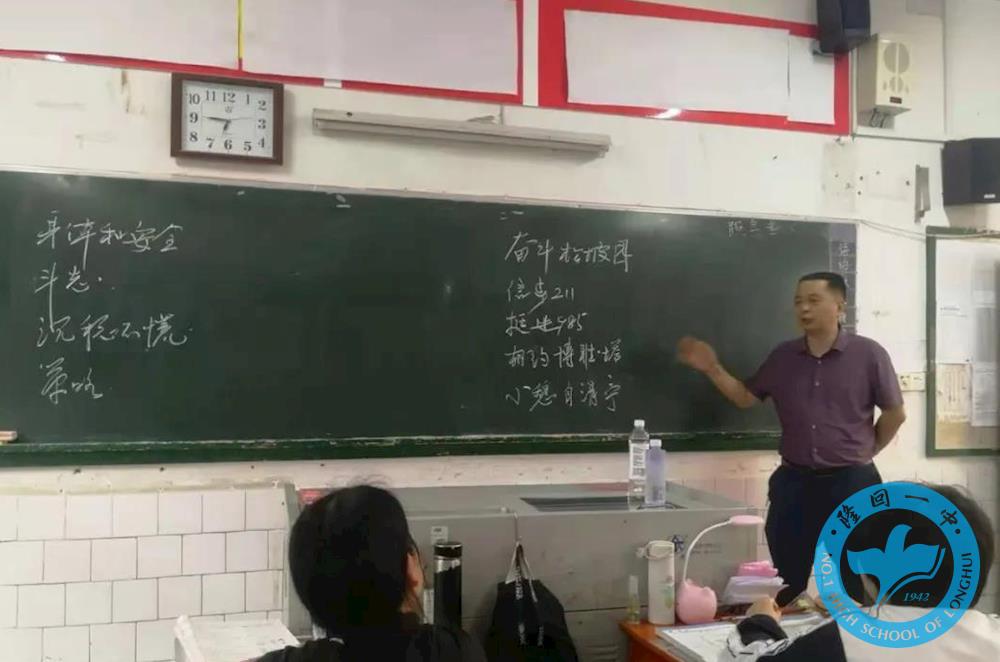 身体和安全
斗志.
沉稳不慌
策略
奋斗松坡
信步211
挺进985
相约博雅塔
小憩自清亭
12
11
1
10
2
9
3
8
4
7
6
5
隆回一中
NO.1 HIGH SCHOOL OF LONGHUI
1942